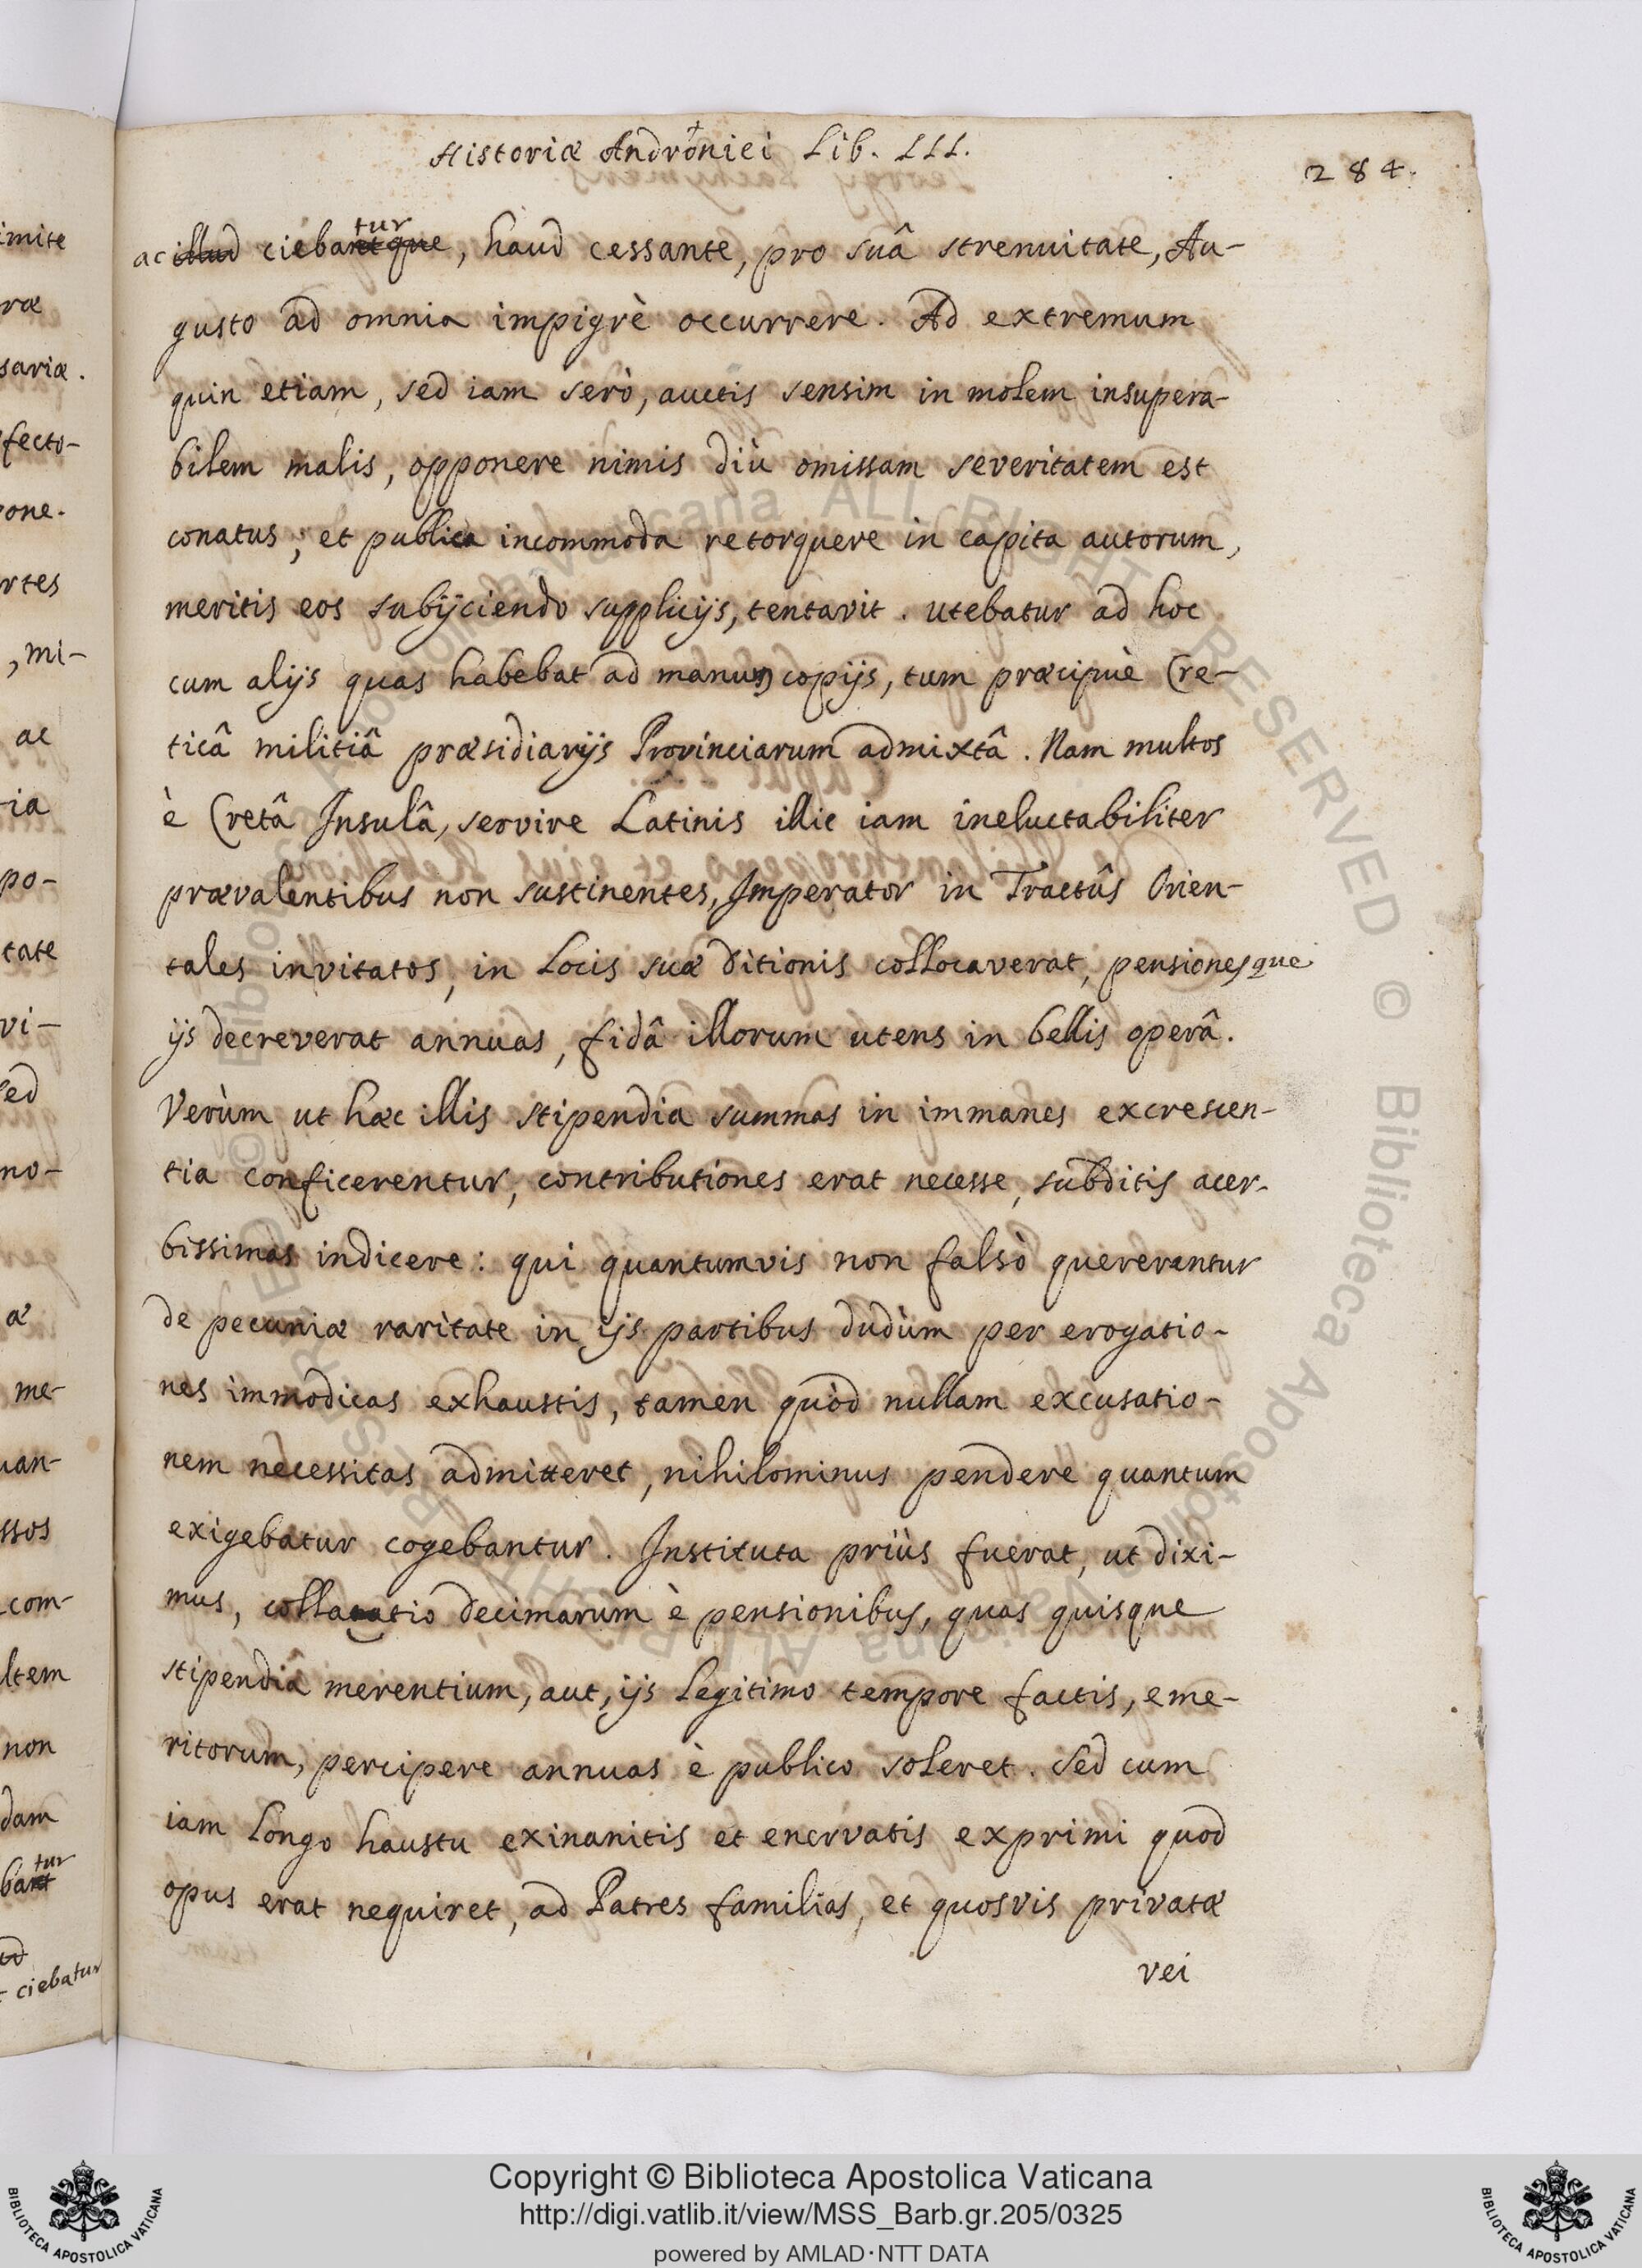 Historiæ Androniei Lib. LLL.
284.
ac illud ciebantque tur, haud cessante, pro suâ strenuitate, Au-
gusto ad omnia impigrè occurrere. Ad extremum
quin etiam, sed iam serò, auctis sensim in molem insupera-
bilem malis, opponere nimis diù omissam severitatem est
conatus; et publica incommoda retorquere in capita autorum,
meritis eos subijciendo supplicijs, tentavit. utebatur ad hoc
cum alijs quas habebat ad manum copijs, tum præcipuè Cre-
ticâ militiâ præsidiarijs Provinciarum admixtâ. Nam multos
è Cretâ Insulâ, servire Latinis illic iam ineluctabiliter
prævalentibus non sustinentes, Imperator in Tractûs Orien-
tales invitatos, in Locis suæ ditionis collocaverat, pensionesque
ijs decreverat annuas, fidâ illorum utens in bellis operâ.
Verùm ut hæc illis stipendia summas in immanes excrescen-
tia conficerentur, contributiones erat necesse, subditis acer-
bissimas indicere: qui quantumvis non falsò quererentur
de pecuniæ raritate in ijs partibus dudùm per erogatio-
nes immodicas exhaustis, tamen quòd nullam excusatio-
nem necessitas admitteret, nihilominus pendere quantum
exigebatur cogebantur. Instituta priùs fuerat, ut dixi-
mus, collatio decimarum è pensionibus, quas quisque
stipendiâ merentium, aut, ijs legitimo tempore factis, eme-
ritorum, percipere annuas è publico soleret. Sed cum
iam longo haustu exinanitis et enervatis exprimi quod
opus erat nequiret, ad Patres familias, et quosvis privatæ
vei
imite
ræ
sariæ.
fecto-
one.
rtes
, mi-
ac
ia
po-
tate
vi-
sed
no-
æ
me-
uan-
ssos
com-
ltem
non
dam
bant tur
ciebatur
Copyright © Biblioteca Apostolica Vaticana
http://digi.vatlib.it/view/MSS_Barb.gr.205/0325
powered by AMLAD·NTT DATA
BIBLIOTECA APOSTOLICA VATICANA
BIBLIOTECA APOSTOLICA VATICANA